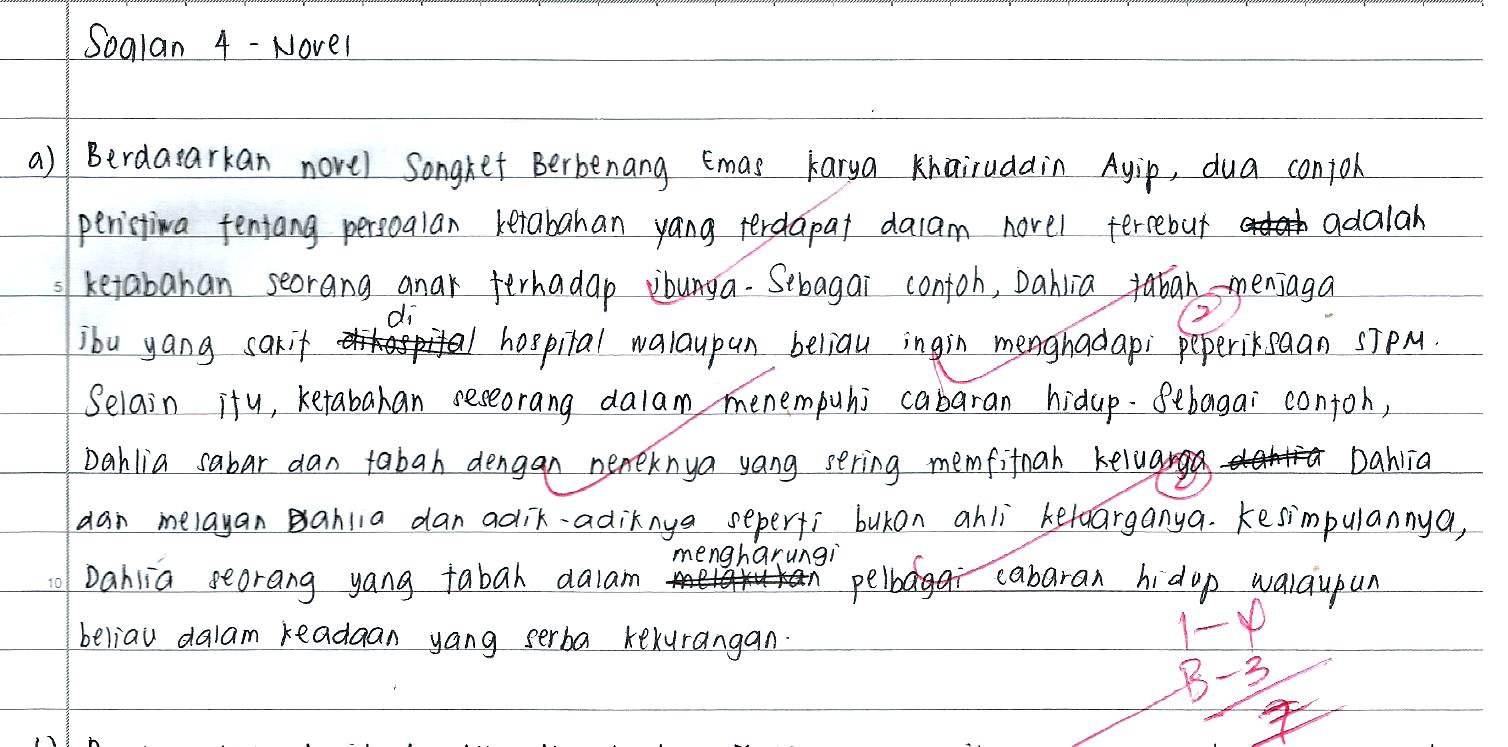 Soalan 4 - Novel
a) Berdasarkan novel Songket Berbenang Emas karya Khairuddin Ayip, dua contoh
peristiwa tentang persoalan ketabahan yang terdapat dalam novel tersebut adah adalah
5 ketabahan seorang anak terhadap ibunya. Sebagai contoh, Dahlia tabah menjaga
2
di
ibu yang sakit dihospital hospital walaupun beliau ingin menghadapi peperiksaan STPM.
Selain itu, ketabahan seseorang dalam menempuhi cabaran hidup. Sebagai contoh,
Dahlia sabar dan tabah dengan neneknya yang sering memfitnah keluarga dahlia Dahlia
2
dan melayan Dahlia dan adik-adiknya seperti bukan ahli keluarganya. Kesimpulannya,
mengharungi
10 Dahlia seorang yang tabah dalam melakukan pelbagai cabaran hidup walaupun
beliau dalam keadaan yang serba kekurangan.
I - 4
B - 3
7